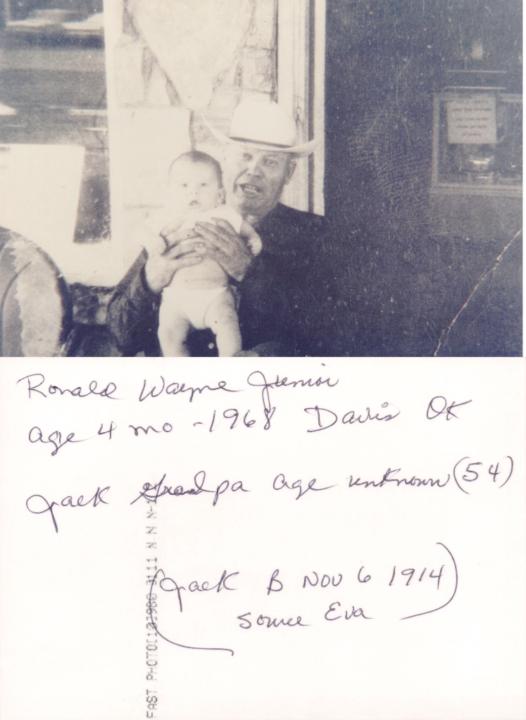 Ronald Wayne Junior
age 4 mo - 1968 Davis OK
Jack Grandpa age unknown (54)
(Jack B Nov 6 1914)
Source Eva
FAST PHOTO